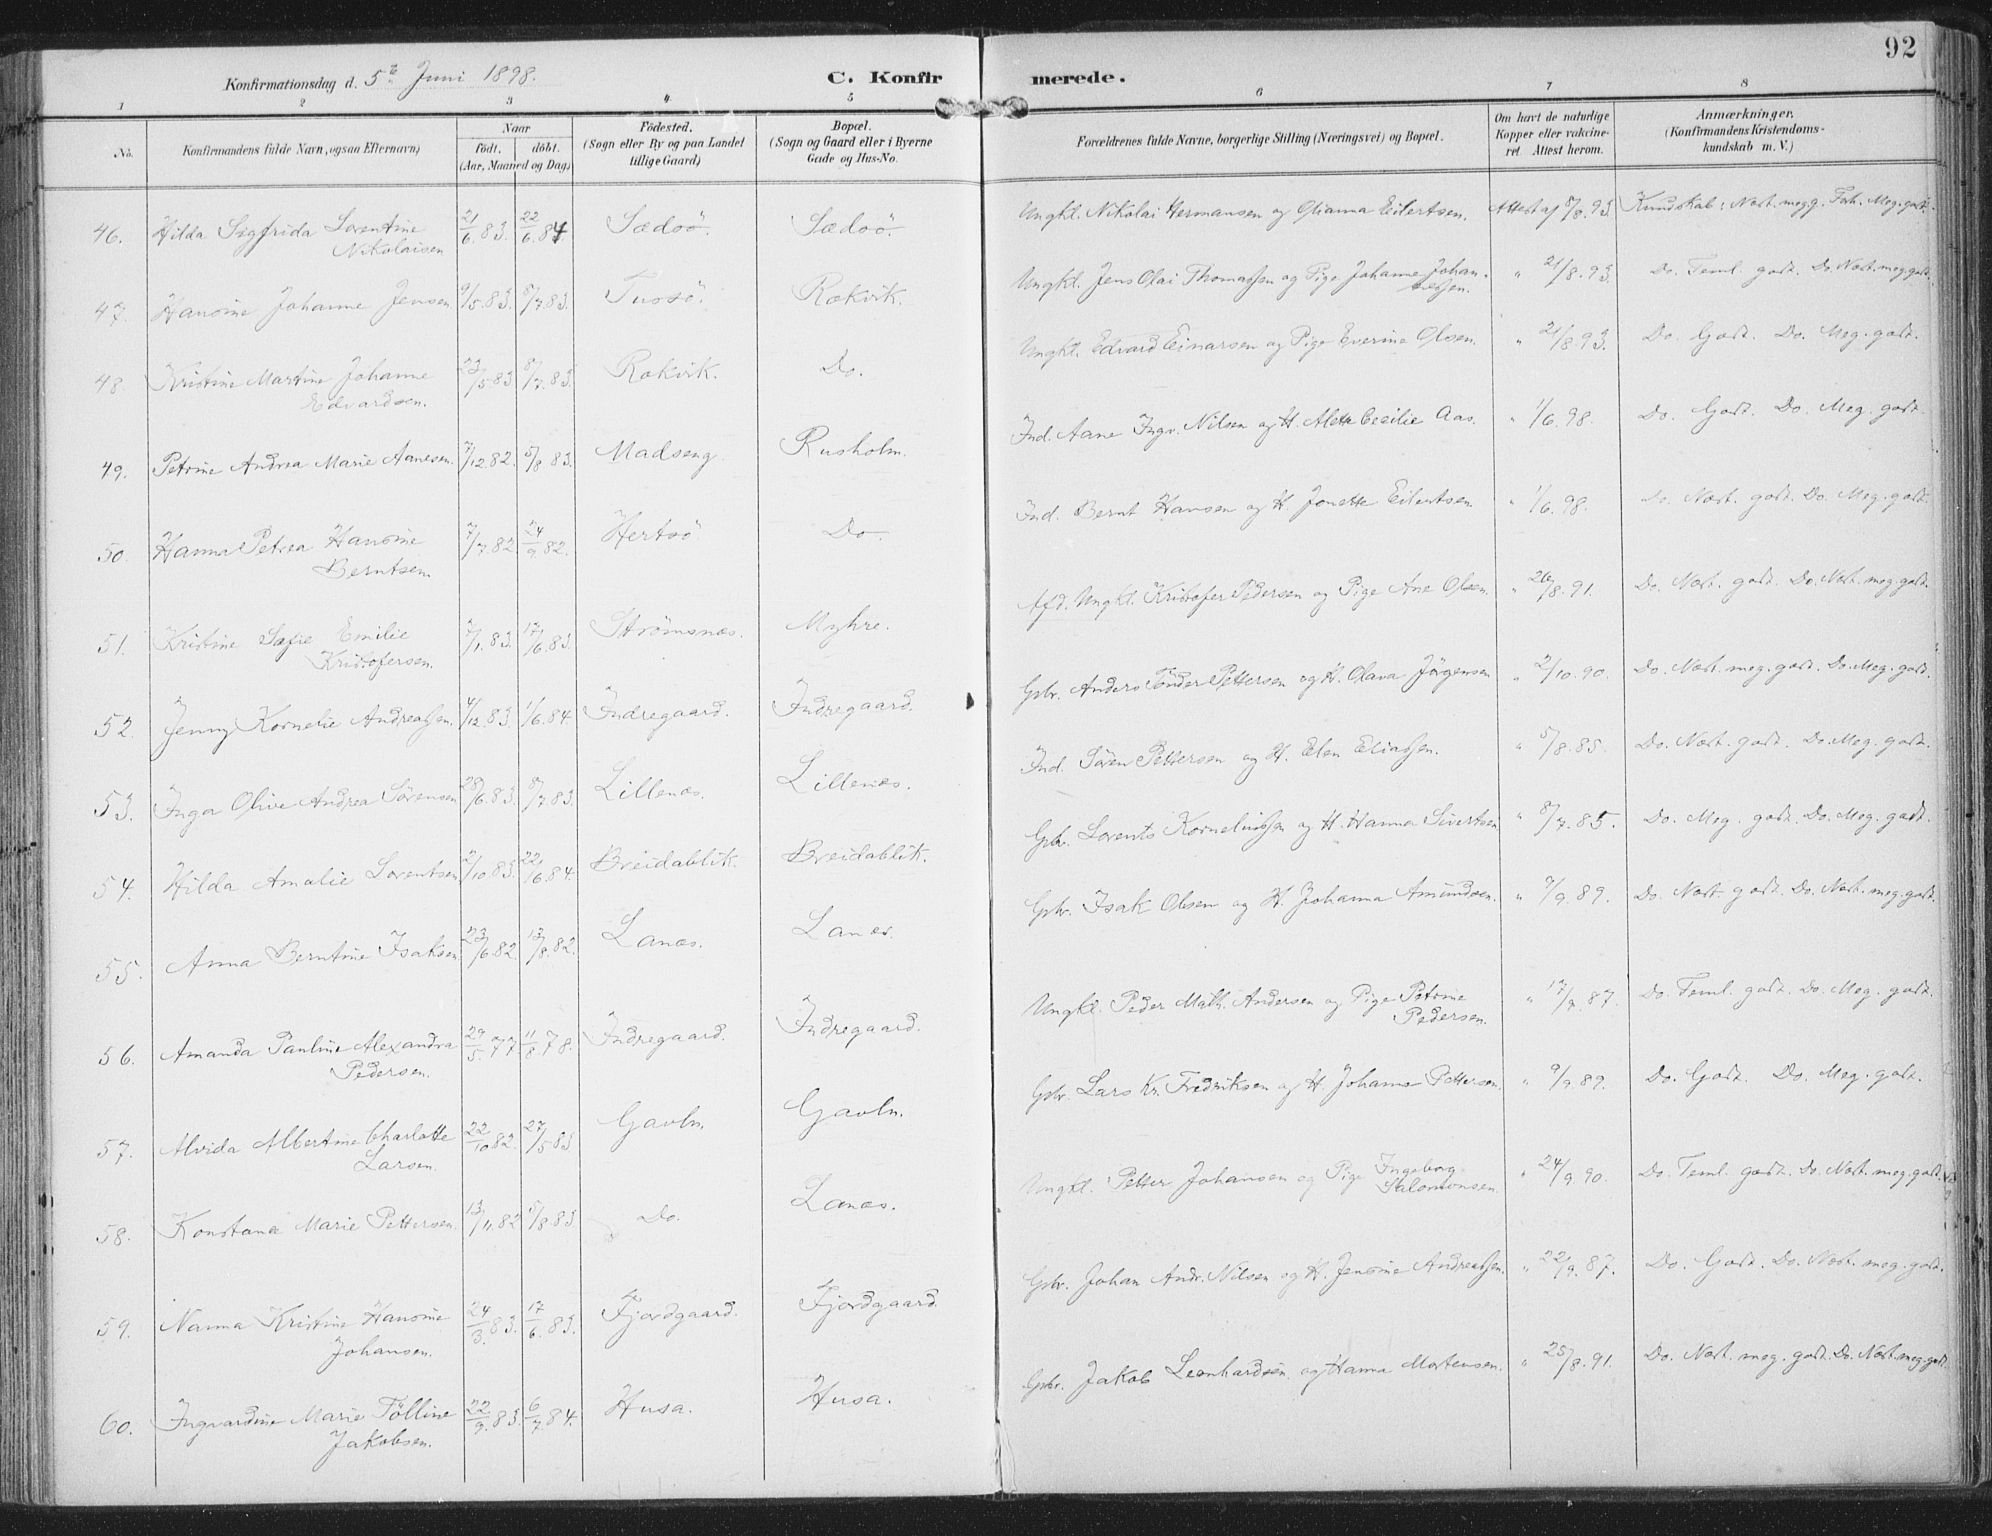 92
Konfirmationsdag d. 5te Juni 1898.
C. Konfir merede.
1 2 3 4 5 6 7 8
No.
Konfirmandens fulde Navn, ogsaa Efternavn)
Naar
födt. döbt.
(Aar, Maaned og Dag)
Födested.
(Sogn eller By og paa Landet
tillige Gaard)
Bopæl.
(Sogn og Gaard eller i Byerne
Gade og Hus-No.
Forældrenes fulde Navne, borgerlige Stilling (Næringsvei) og Bopæl.
Om havt de naturlige
Kopper eller vakcine-
ret Attest herom.
Anmærkninger.
(Konfirmandens Kristendoms-
kundskab m. V.)
46. Hilda Sigfrida Lorentine
Nikolaisen 21/6.83. 22/6.84 Sædsö. Sædsö. Ungkl. Nikolai Hermansen og Olianna Eilertsen. Attest af 8/8.93. Kundskab: Næst. megg. Foh. Meg. godt.
47. Hansine Johanne Jensen. 9/5.83. 8/7.83. Tussö. Rækvik. Ungkl. Jens Olai Thomassen og Pige Johanne Johan-
nessen. " 21/8.93. Do. Teml. godt. Do. Næst. meg. godt.
48. Kristine Martine Johanne
Edvardsen. 23/5 83. 8/7.83. Rækvik. Do. Ungkl. Edvard Einarsen og Pige Everine Olsen. " 21/8.93. Do. Godt. Do. Meg. godt.
49. Petrine Andrea Marie Aanesen. 7/12.82. 5/8.83. Madseng Rusholm. Ind. Aane Ingv. Nilsen og H. Alette Cecilie Aas. " 1/6.98. Do. Godt. Do. Meg. godt.
50. Hanna Petrea Hansine
Berntsen. 7/7.82. 24/9.82. Hertsö Do. Ind. Bernt Hansen og H. Jonette Eilertsen. " 1/6.98. Do. Næst. godt. Do. Meg. godt.
51. Kristine Sofie Emilie
Kristofersen. 7/1.83. 17/6.83. Strömsnæs. Myhre. Afd. Ungkl. Kristofer Pedersen og Pige Ane Olsen. " 26/8.91. Do. Næst. godt. Do. Næst. meg. godt.
52. Jenny Kornelie Andreassen. 4/12.83. 1/6.84. Indregaard. Indregaard. Gbr. Anders Tönder Pettersen og H. Olava Jörgensen " 2/10.90. Do. Næst. meg. godt. Do. Meg. godt.
53. Inga Olive Andrea Sörensen 28/6.83. 8/7.83. Lillenæs. Lillenæs. Ind. Sören Pettersen og H. Elen Eliassen. " 5/8.85. Do. Næst. godt. Do. Meg. godt.
54. Hilda Amalie Lorentsen 2/10.83. 22/6.84. Breidablik. Breidablik. Gbr. Lorents Korneliussen og H. Hanna Sivertsen " 8/7.85. Do. Meg. godt. Do. Meg. godt.
55. Anna Berntine Isaksen 23/6.82. 13/8.82. Lanæs. Lanæs. Gbr. Isak Olsen og H. Johanna Amundsen. " 9/9.89. Do. Næst. godt. Do. Næst. meg. godt.
56. Amanda Pauline Alexandra
Pedersen. 29/5.77 11/8.78. Indregaard. Indregaard. Ungkl. Peder Math. Andersen og Pige Petrine
Pedersen. " 17/9.87. Do. Teml. godt. Do. Meg. godt.
57. Alvida Albertine Charlotte
Larsen. 22/10 82. 27/5 83. Gavln. Gavln. Gbr. Lars Kr. Fredriksen og H. Johanna Pettersen. " 9/9 89. Do. Godt. Do. Meg. godt.
58. Konstana Marie Pettersen. 13/11.82 5/8 83. Do. Lanæs. Ungkl. Petter Johansen og Pige Ingeborg
Salomonsen. " 24/9 90. Do. Teml. godt. Do. Næst. meg. godt.
59. Nanna Kristine Hansine
Johansen. 24/3.83. 17/6.83. Fjordgaard. Fjordgaard. Gbr. Johan Andr. Nilsen og H. Jensine Andreassen. " 22/9.87. Do. Godt. Do. Næst. meg. godt.
60. Ingvardine Marie Tölline
Jakobsen. 22/9.83. 6/7.84. Husa. Husa. Gbr. Jakob Leonhardsen og Hanna Mortensen. " 25/8.91. Do. Næst. meg. godt. Do. Næst. meg. godt.